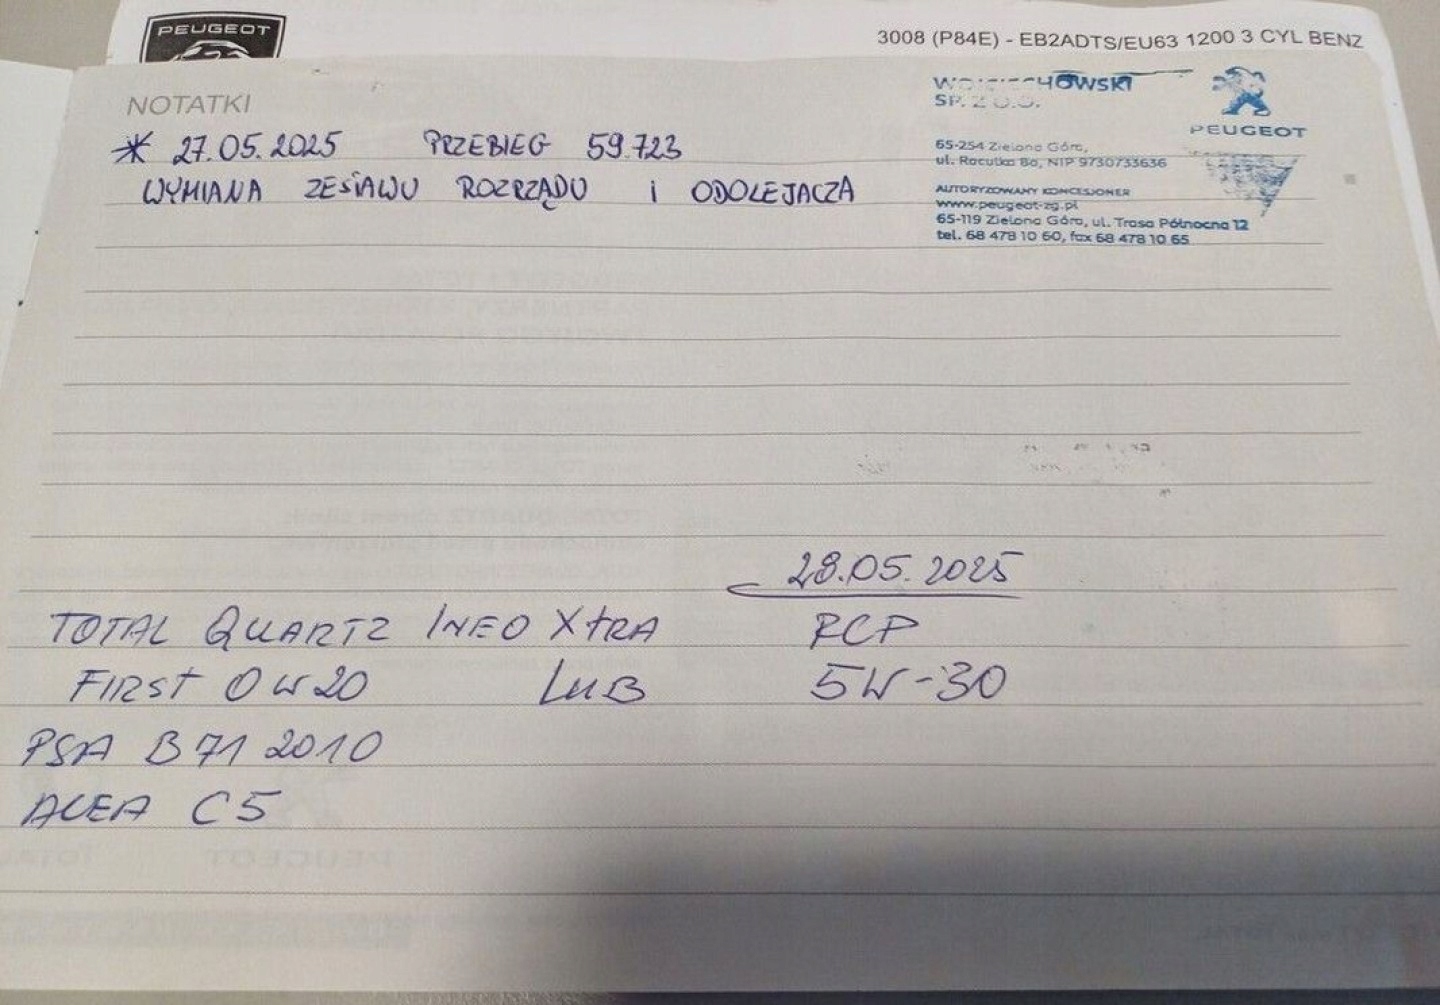 PEUGEOT
3008 (P84E) - EB2ADTS/EU63 1200 3 CYL BENZ
NOTATKI
WOJCIECHOWSKI
SP. Z O.O.
PEUGEOT
65-254 Zielona Góra,
ul. Racula 8a, NIP 9730733636
AUTORYZOWANY KONCESJONER
www.peugeot-zg.pl
65-119 Zielona Góra, ul. Trasa Północna 12
tel. 68 478 10 60, fax 68 478 10 65
* 27.05.2025 PRZEBIEG 59.723
WYMIANA ZESTAWU ROZRZĄDU I ODOLEJACZA
28.05.2025
TOTAL QUARTZ INEO XtRA FCP
FIRST 0W20 LUB 5W-30
PSA B71 2010
ACEA C5